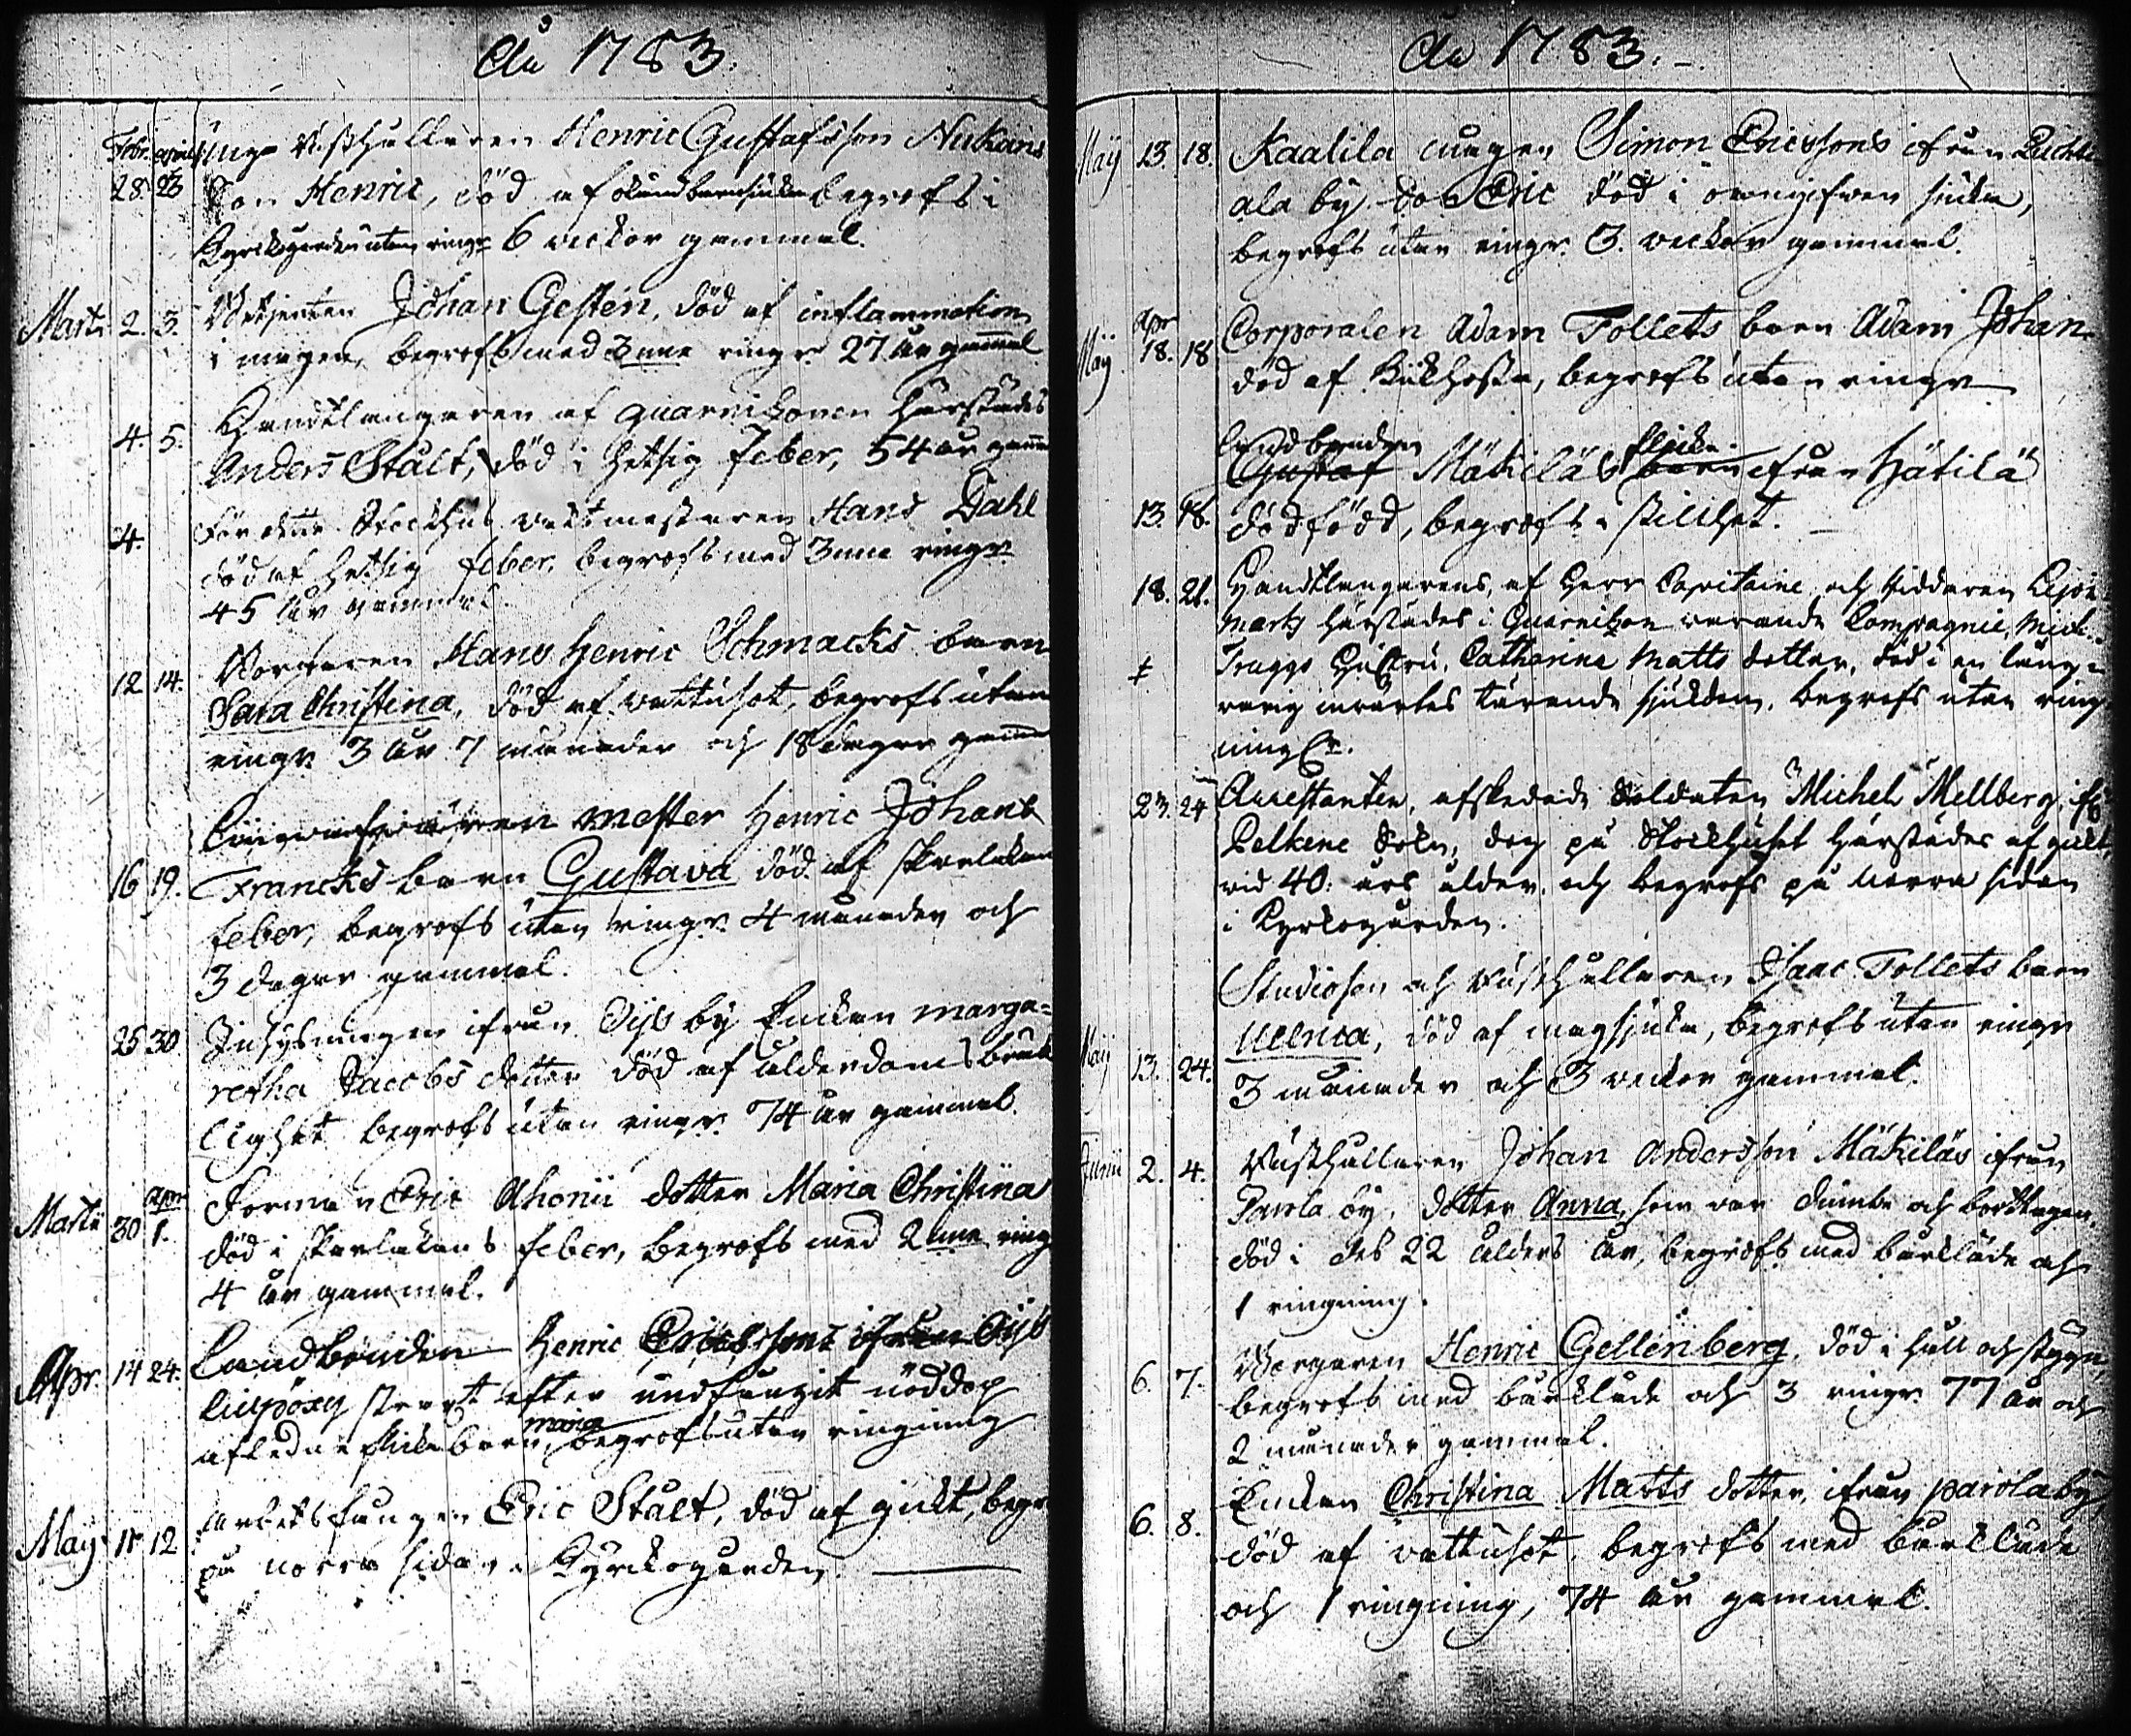 Åhr 1783.
Febr. 28. 23 Unge Rusthållaren Henric Gustafsson Nukaris
Son Henric, död af begrofs i
Kyrckogården utan ringn. 6 weckor gammal.
Martii 2. 3. Johan Gestén, död af inflammation
i magen, begrofs med 3nne ringn. 27 år gammal
4. 5. Handtlangaren af Guarnizonen härstädes
Anders Stålt, död i hetsig feber, 54 år gamm
4. För detta Stockhus wacktmästaren Hans Dahl
död af hetsig feber, begrofs med 3nne ringn.
45 år gammal
12 14. Borgaren Hans Henric Schmacks barn
Sara Christina, död af wattusot, begrofs utan
ringn. 3 år 7 månader och 18 dagar gamm
mäster Henric Johan
16 19. Francks barn Gustava död af skarlakan
feber, begrofs utan ringn. 4 månader och
3 dagar gammal.
25 30 Inhysningen ifrån Öijs by Enckan Marga=
retha Jacobs dotter död af ålderdoms bräck
lighet begrofs utan ringn. 74 år gammal.
Martii 30 Apr 1. Forman Eric Ahonii dotter Maria Christina
död i skarlakans feber, begrofs med 2nne ring
4 år gammal.
Apr. 14 24. Landbonden Henric Ericssons ifrån Öijs
strax efter undfångit nöddop
aflednе flickebarn, Maria begrofs utan ringning
May 11 12 Arbetsfången Eric Stålt, död af gickt, begr
på norra sidan i Kyrckogården.
Åhr 1783.
Maij 13. 18. Kaalila ungen Simon Ericssons ifrån
ala by Son Eric död i sjuka,
begrofs utan ringn. 3. weckor gammal.
Maij Apr 18. 18 Corporalen Adam Tollets barn Adam Johan
död af Kikhosta, begrofs utan ringn
Landbonden
Gustaf Mäkiläs flicke barn ifrån Hätilä
13. 18. dödfödd, begrofs i stillhet.
18. 21. Handtlangarens, af Herr Capitaine och Riddaren
marks härstädes i Guarnizon warande Compagnie, Mich.
Traggs Hustru, Catharina Matts dotter, död i en lång=
warig invärtes tärande sjukdom, begrofs utan ring
ning.
23. 24 Arrestanten, afskedade Soldaten Michel Mellberg ifr
Pelkene Sokn, dog på Stockhuset härstädes af gickt,
vid 40: års ålder och begrofs på norra sidan
i Kyrkogården.
Studiosen och Rusthållaren Isaac Tollets barn
Maij 13. 24. Ulrica, död af magsjuka, begrofs utan ringn
3 månader och 3 weckor gammal.
Junii 2. 4. Rusthållaren Johan Andersson Mäkiläs ifrån
Parola by, dotter Anna, som war dumbe och borttagen,
död i des 22 ålders år, begrofs med bårkläde och
1 ringning.
6. 7. Borgaren Henric Gellenberg, död i håll och styng,
begrofs med bårkläde och 3 ringn. 77 år och
2 månader gammal.
6. 8. Enckan Christina Matts dotter, ifrån Parola by,
död af wattusot, begrofs med bårkläde
och 1 ringning, 74 år gammal.